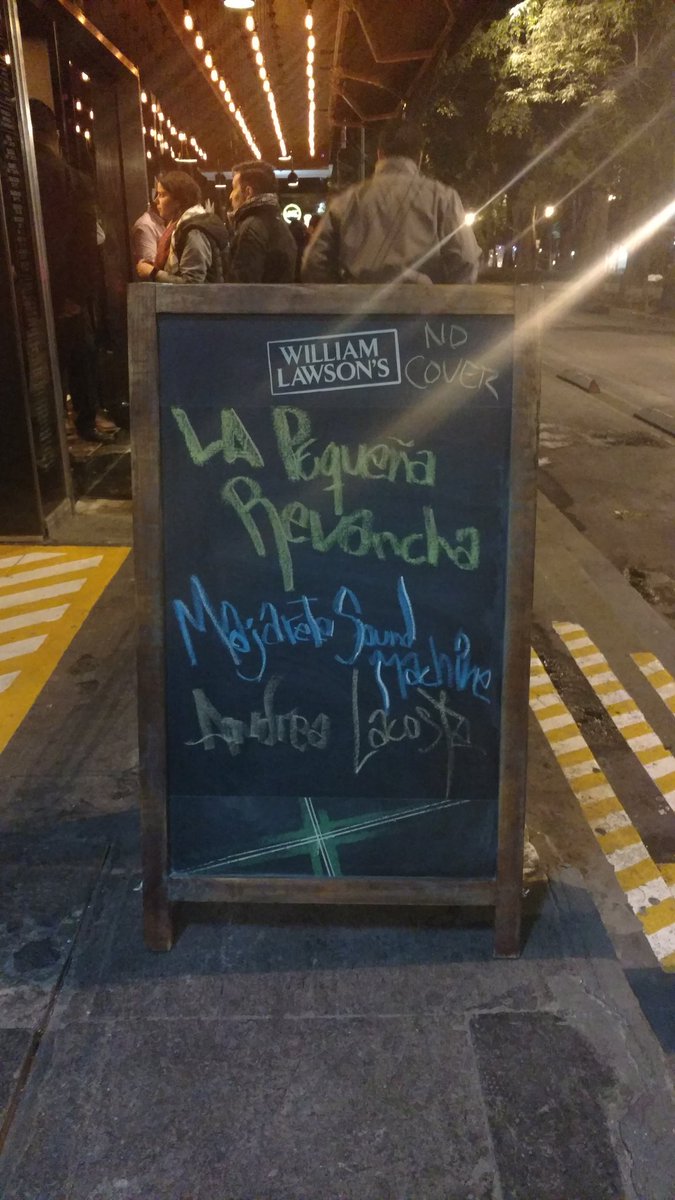 WILLIAM
LAWSON'S
NO
COVER
LA Pequeña
Revancha
Majareta Sound
Machine
Andrea Lacoste